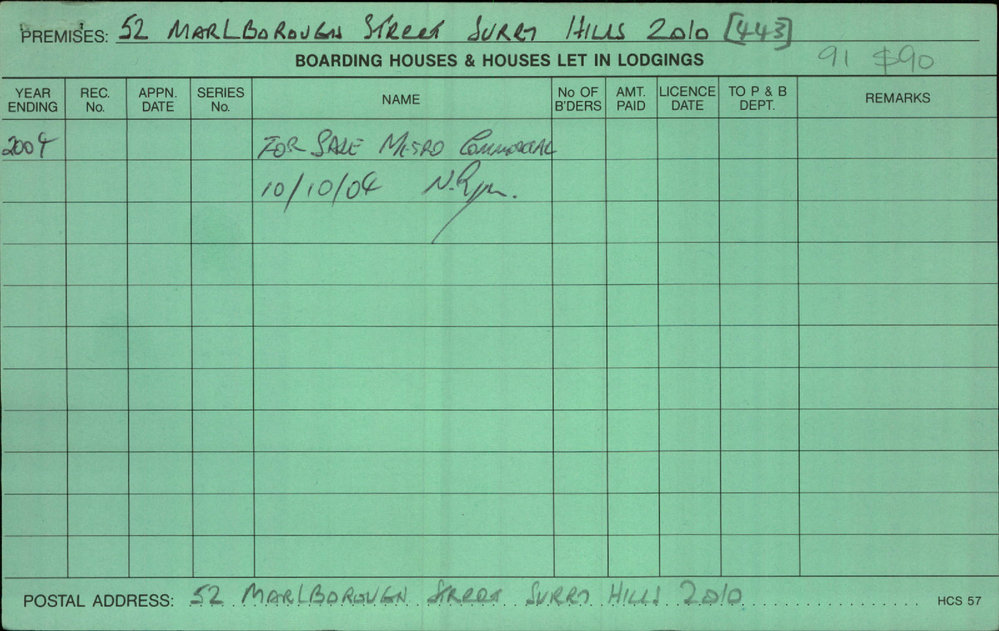 PREMISES: 52 MARLBOROUGH STREET SURRY HILLS 2010 [443]
BOARDING HOUSES & HOUSES LET IN LODGINGS 91 $90
YEAR ENDING REC. No. APPN. DATE SERIES No. NAME No OF B'DERS AMT. PAID LICENCE DATE TO P & B DEPT. REMARKS
2004 FOR SALE METRO COMMERCIAL
10/10/04 N.
POSTAL ADDRESS: 52 MARLBOROUGH STREET SURRY HILLS 2010 HCS 57